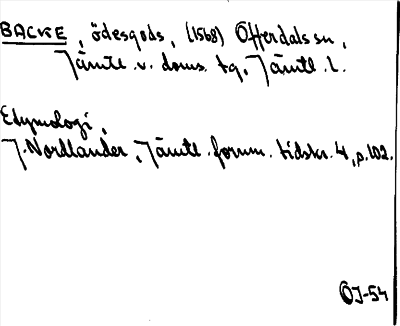 BACKE, ödesgods, (1568) Offerdals sn,
Jämtl. v. doms. tg, Jämtl. l.
Etymologi,
J. Nordlander, Jämtl. fornm. tidskr. 4, p. 102.
OJ-54